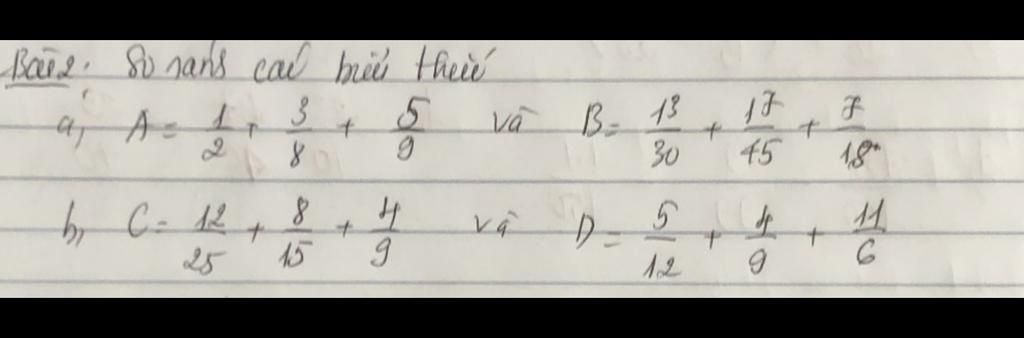 Bài 2: So sánh các biểu thức
a, A = 1/2 + 3/8 + 5/9 và B = 13/30 + 17/45 + 7/18
b, C = 12/25 + 8/15 + 4/9 và D = 5/12 + 4/9 + 11/6